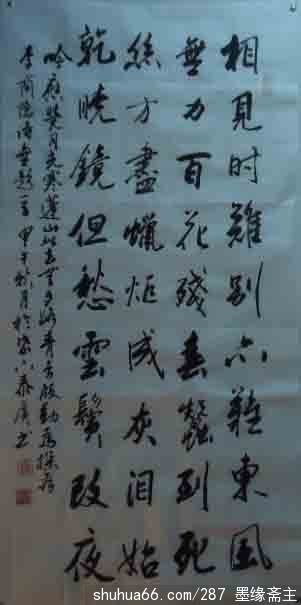 相見时難别亦難東風
無力百花殘春蠶到死
絲方盡蠟炬成灰泪始
乾曉鏡但愁雲鬢改夜
吟應覺月光寒蓬山此去無多路青鳥殷勤為探看
李商隐诗無題一首甲午秋月於
shuhua66.com/287 墨缘斋主